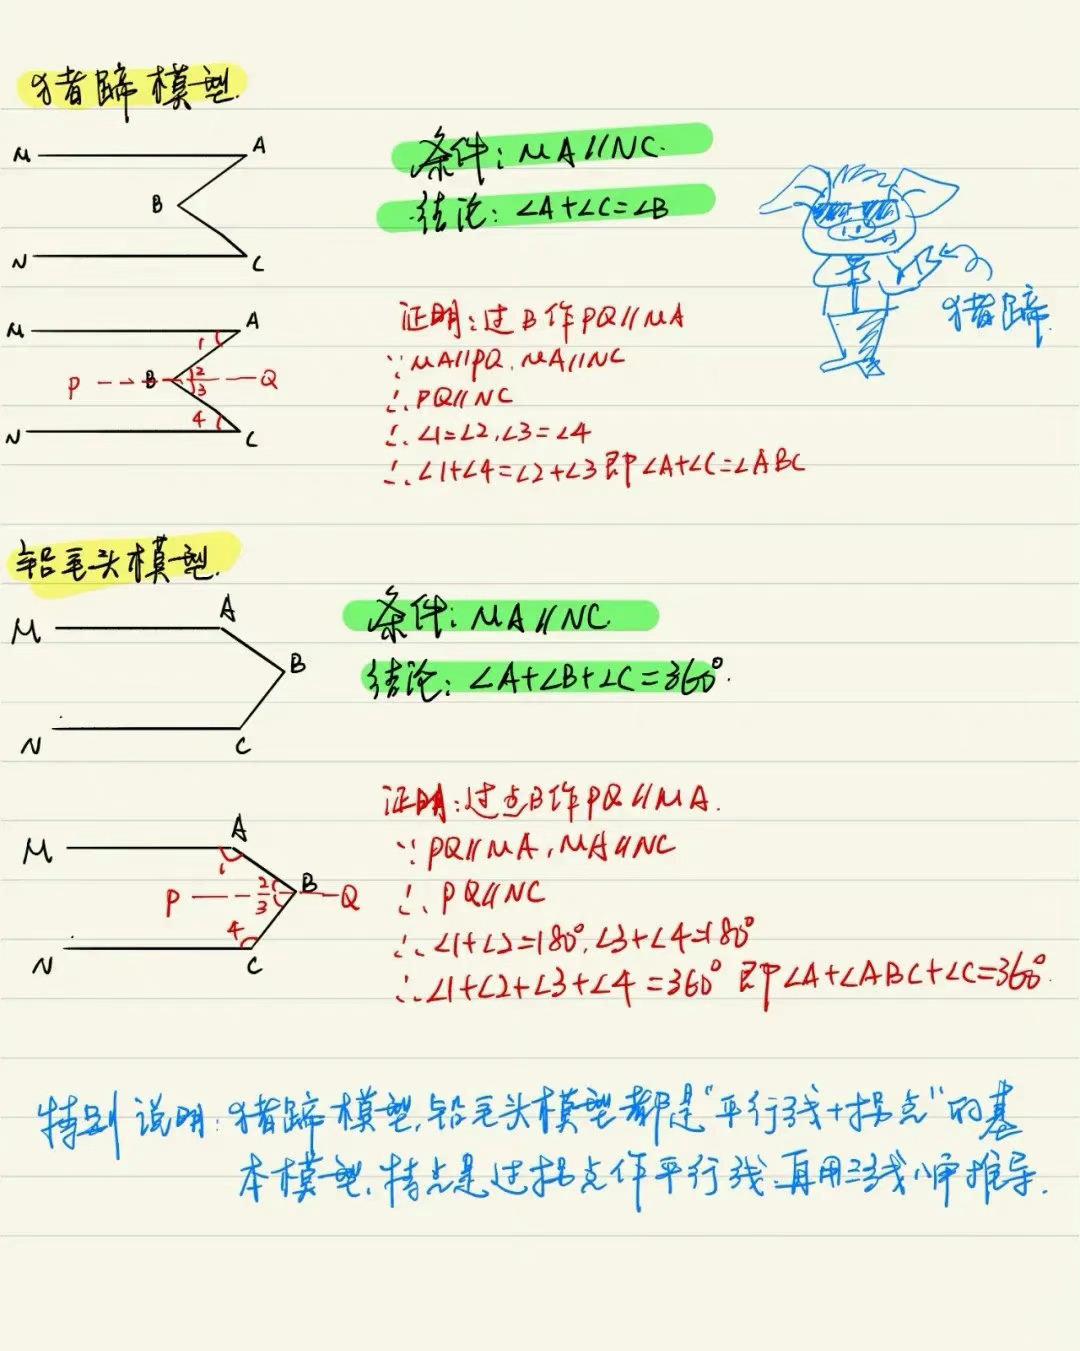 猪蹄模型.
M A
B
N C
条件: MA∥NC.
结论: ∠A+∠C=∠B
猪蹄
M A
1
P B 2 Q
3
4
N C
证明:过B作PQ∥MA
∵MA∥PQ,MA∥NC
∴PQ∥NC
∴∠1=∠2,∠3=∠4
∴∠1+∠4=∠2+∠3即∠A+∠C=∠ABC
铅笔头模型.
M A
B
N C
条件: MA∥NC
结论: ∠A+∠B+∠C=360°.
M A
1
P 2 B Q
3
4
N C
证明:过点B作PQ∥MA.
∵PQ∥MA,MA∥NC
∴PQ∥NC
∴∠1+∠2=180°,∠3+∠4=180°
∴∠1+∠2+∠3+∠4=360°即∠A+∠ABC+∠C=360°.
特别说明:猪蹄模型,铅笔头模型都是"平行线+拐点"的基
本模型,特点是过拐点作平行线,再用三线八角推导.